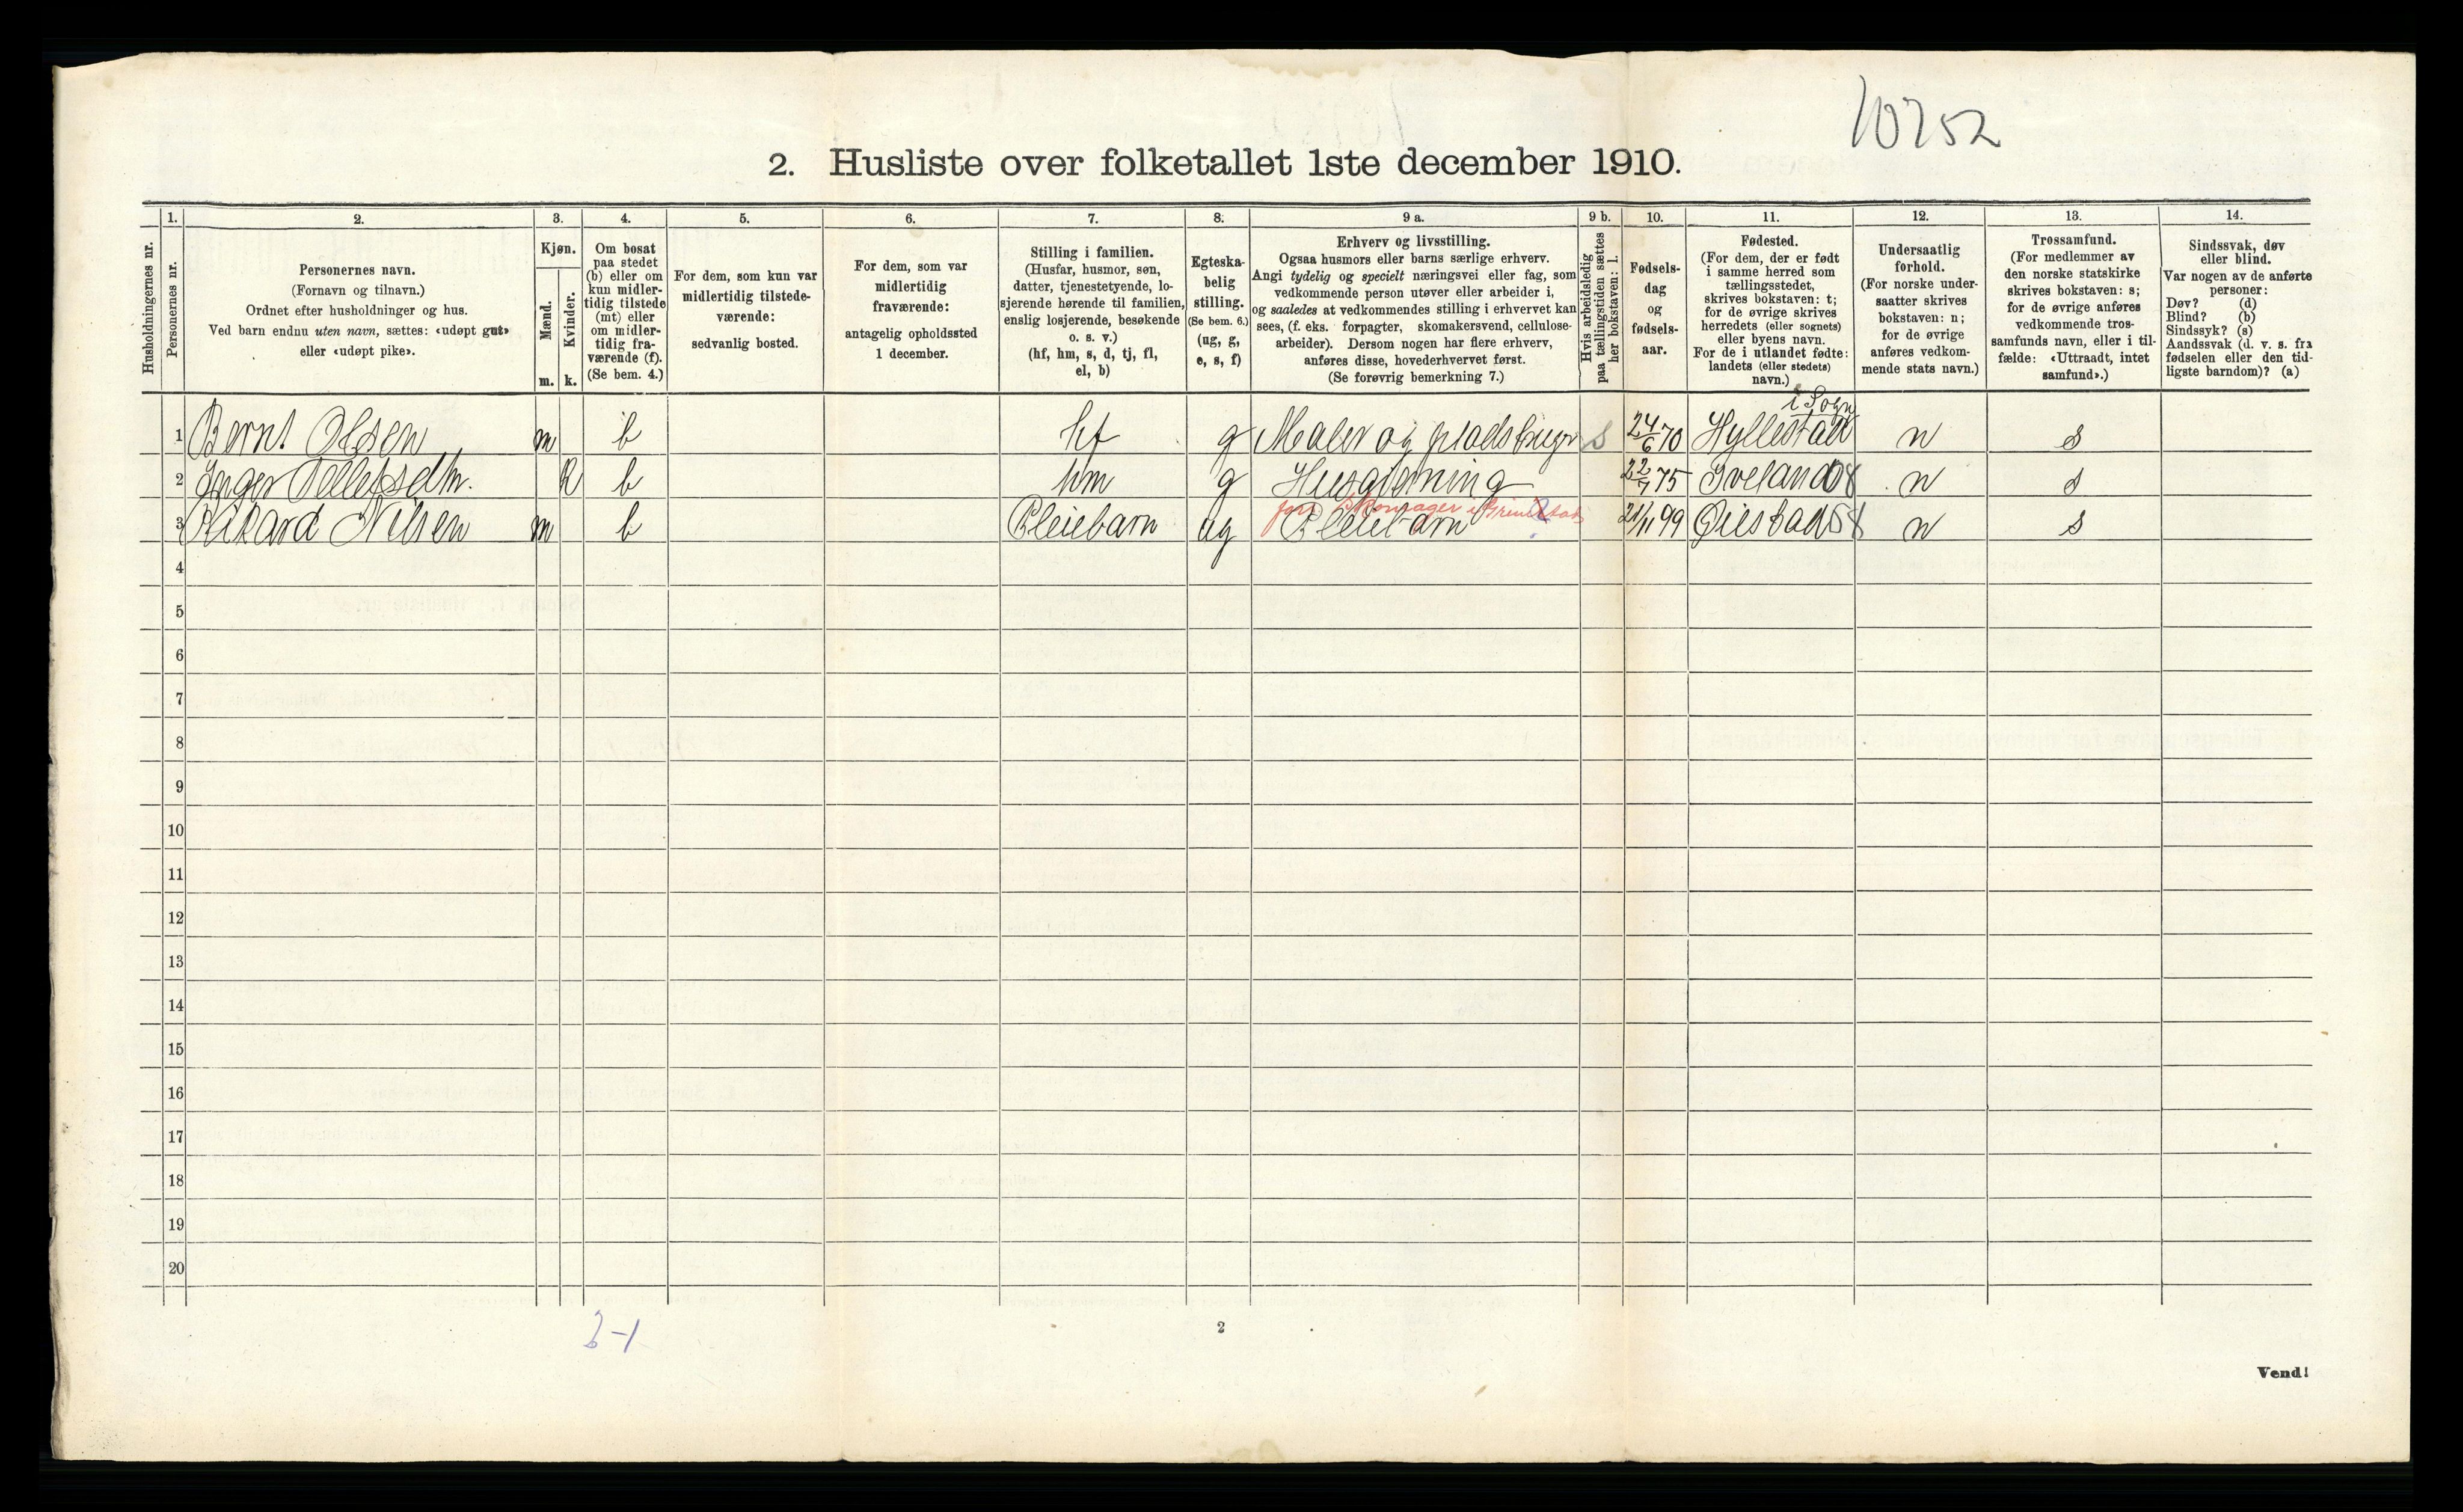 10752
2. Husliste over folketallet 1ste december 1910.
1. 2. 3. 4. 5. 6. 7. 8. 9 a. 9 b. 10. 11. 12. 13. 14.
Husholdningernes nr.
Personernes nr.
Personernes navn.
(Fornavn og tilnavn.)
Ordnet efter husholdninger og hus.
Ved barn endnu uten navn, sættes: «udøpt gut»
eller «udøpt pike».
Kjøn.
Mænd.
Kvinder.
m. k.
Om bosat
paa stedet
(b) eller om
kun midler-
tidig tilstede
(mt) eller
om midler-
tidig fra-
værende (f).
(Se bem. 4.)
For dem, som kun var
midlertidig tilstede-
værende:
sedvanlig bosted.
For dem, som var
midlertidig
fraværende:
antagelig opholdssted
1 december.
Stilling i familien.
(Husfar, husmor, søn,
datter, tjenestetyende, lo-
sjerende hørende til familien,
enslig losjerende, besøkende
o. s. v.)
(hf, hm, s, d, tj, fl,
el, b)
Egteska-
belig
stilling.
(Se bem. 6.)
(ug, g,
e, s, f)
Erhverv og livsstilling.
Ogsaa husmors eller barns særlige erhverv.
Angi tydelig og specielt næringsvei eller fag, som
vedkommende person utøver eller arbeider i,
og saaledes at vedkommendes stilling i erhvervet kan
sees, (f. eks. forpagter, skomakersvend, cellulose-
arbeider). Dersom nogen har flere erhverv,
anføres disse, hovederhvervet først.
(Se forøvrig bemerkning 7.)
Hvis arbeidsledig
paa tællingstiden sættes
her bokstaven: l.
Fødsels-
dag
og
fødsels-
aar.
Fødested.
(For dem, der er født
i samme herred som
tællingsstedet,
skrives bokstaven: t;
for de øvrige skrives
herredets (eller sognets)
eller byens navn.
For de i utlandet fødte:
landets (eller stedets)
navn.)
Undersaatlig
forhold.
(For norske under-
saatter skrives
bokstaven: n;
for de øvrige
anføres vedkom-
mende stats navn.)
Trossamfund.
(For medlemmer av
den norske statskirke
skrives bokstaven: s;
for de øvrige anføres
vedkommende tros-
samfunds navn, eller i til-
fælde: «Uttraadt, intet
samfund».)
Sindssvak, døv
eller blind.
Var nogen av de anførte
personer:
Døv? (d)
Blind? (b)
Sindssyk? (s)
Aandssvak (d. v. s. fra
fødselen eller den tid-
ligste barndom)? (a)
i Sogn
1 Bernt Olsen m b hf g Maler og pladsbruger s 24/6 70 Hyllestad n s
2 Inger Tellefsdtr. k b hm g Husgjerning 22/7 75 Iveland 08 n s
3 Rikard Nilsen m b Pleiebarn ug Pleiebarn 21/11 99 Øiestad 58 n s
4
5
6
7
8
9
10
11
12
13
14
15
16
17
18
19
20
2-1
2
Vend!